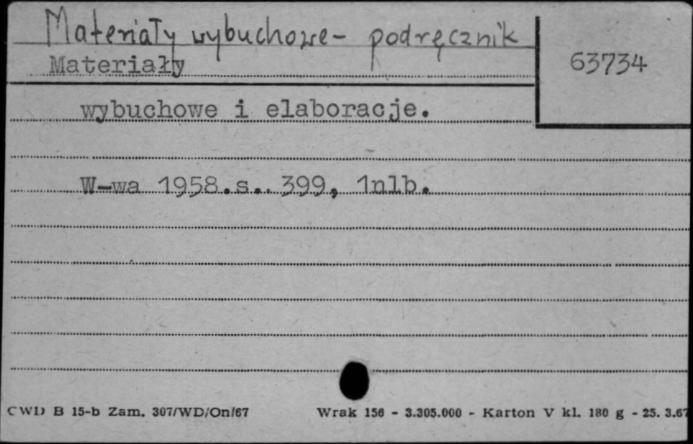 Materiały wybuchowe - podręcznik
63734
Materiały
wybuchowe i elaboracje.
W-wa 1958.s.. 399, 1nlb.
CWD B 15-b Zam. 307/WD/On/67 Wrak 156 - 3.305.000 - Karton V kl. 180 g - 25. 3.67